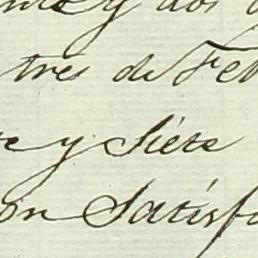 y dos
tres de Feb
y Siete
on Satisf